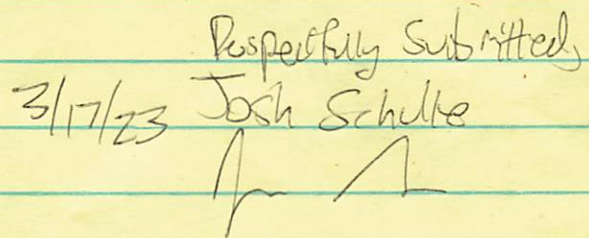 Respectfully Submitted,
3/17/23 Josh Schulte